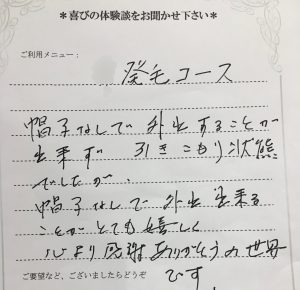 ＊喜びの体験談をお聞かせ下さい＊
ご利用メニュー：
発毛コース
帽子なしで外出することが
出来ず 引きこもり状態
でしたが、
帽子なしで外出出来る
ことがとても嬉しく
心より感謝ありがとうの世界
です。
ご要望など、ございましたらどうぞ